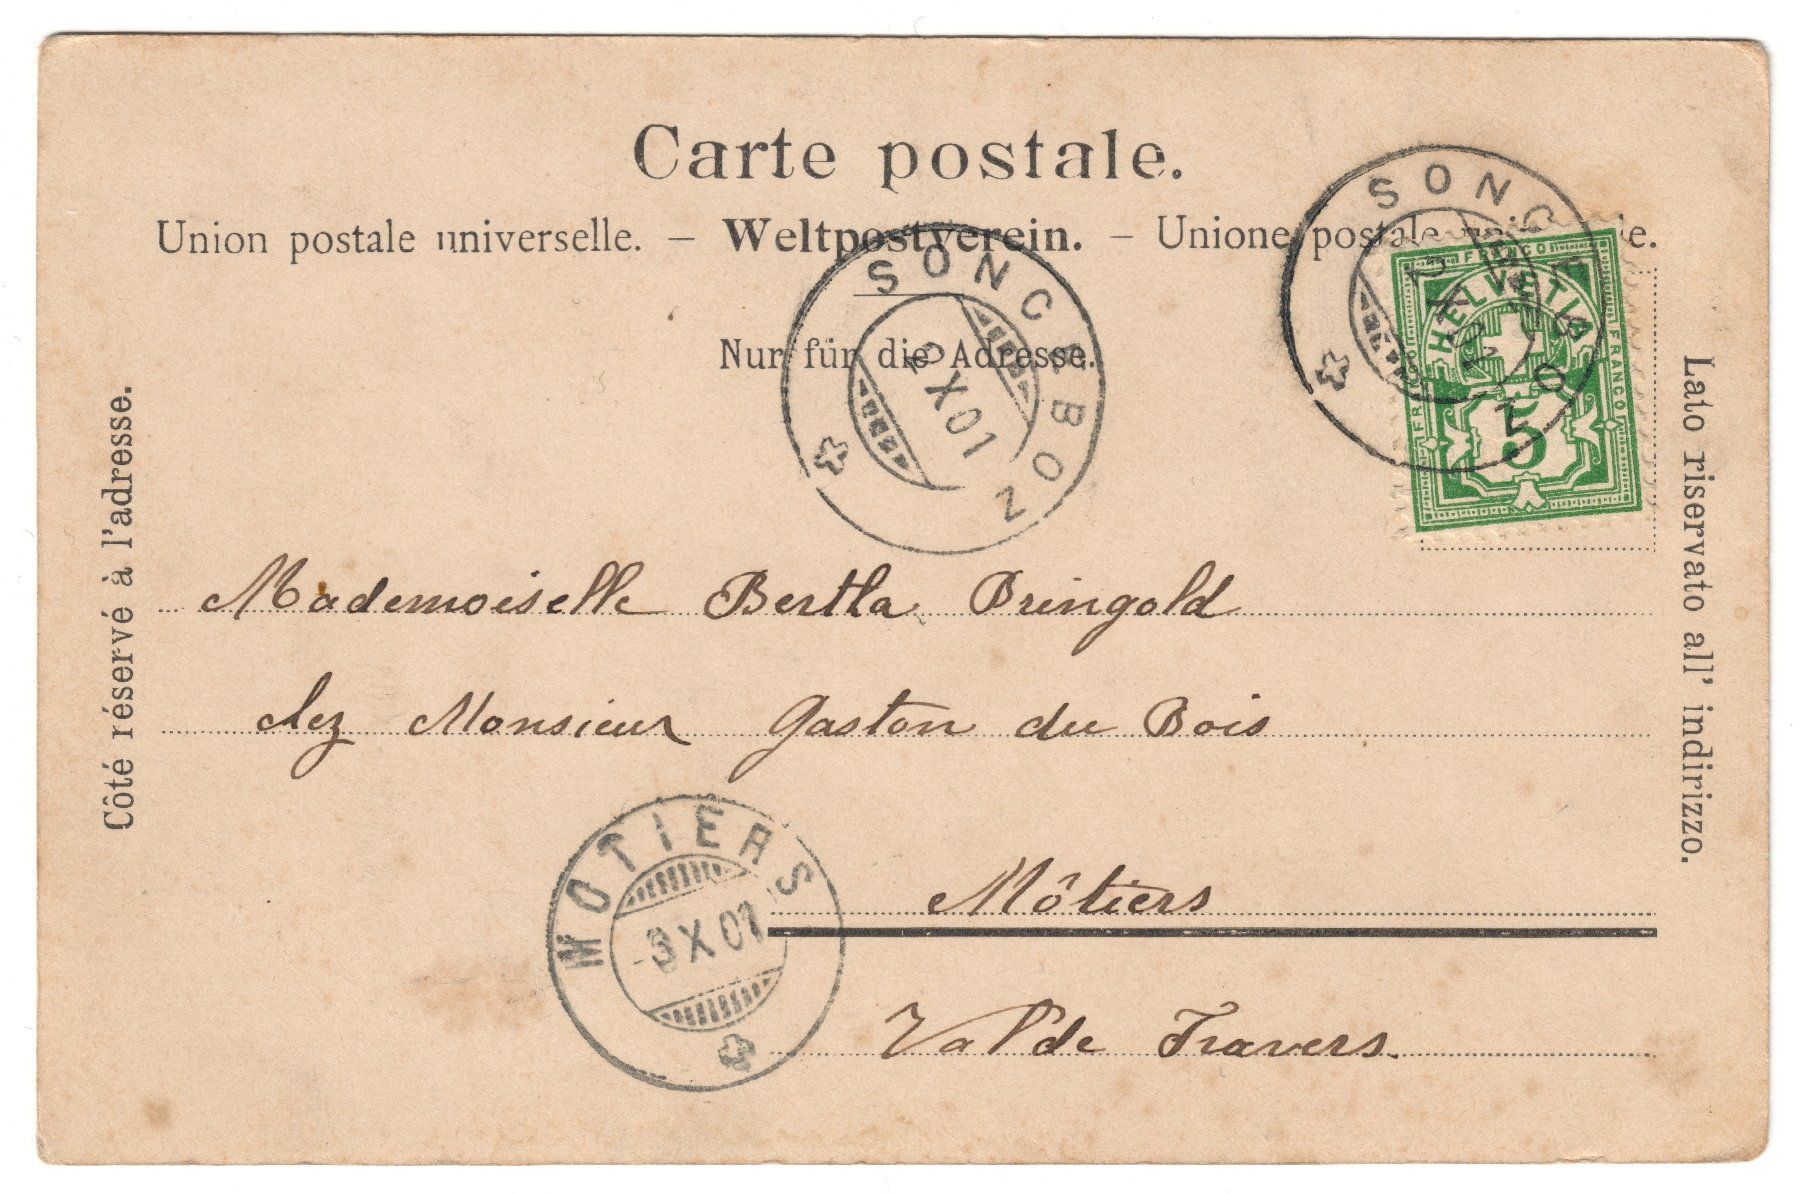 Carte postale.
Union postale universelle. – Weltpostverein. – Unione postale
Nur für die Adresse.
Côté réservé à l'adresse.
Lato riservato all' indirizzo.
SONCEBOZ
2 X 01
SONCEBOZ
2 X 01
FRANCO
FRANCO
HELVETIA
5
Mademoiselle Bertha Bringold
chez Monsieur Gaston du Bois
Môtiers
Val de Travers.
MOTIERS
-3 X 01